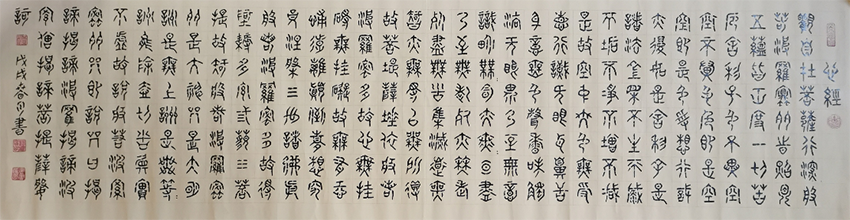 心經
觀自在菩薩行深般
若波羅蜜多時照見
五蘊皆空度一切苦
厄舍利子色不異空
空不異色色即是空
空即是色受想行識
亦復如是舍利子是
諸法空相不生不滅
不垢不淨不增不減
是故空中無色無受
想行識無眼耳鼻舌
身意無色聲香味觸
法無眼界乃至無意
識界無無明亦無無明
盡乃至無老死亦無老
死盡無苦集滅道無
智亦無得以無所得
故菩提薩埵依般若
波羅蜜多故心無掛
礙無掛礙故無有恐
怖遠離顛倒夢想究
竟涅槃三世諸佛依
般若波羅蜜多故得
阿耨多羅三藐三菩
提故知般若波羅蜜
多是大神咒是大明
咒是無上咒是無等
等咒能除一切苦真實
不虛故說般若波羅
蜜多咒即說咒曰揭
諦揭諦波羅揭諦波
羅僧揭諦菩提薩婆
訶
戊戌春月書